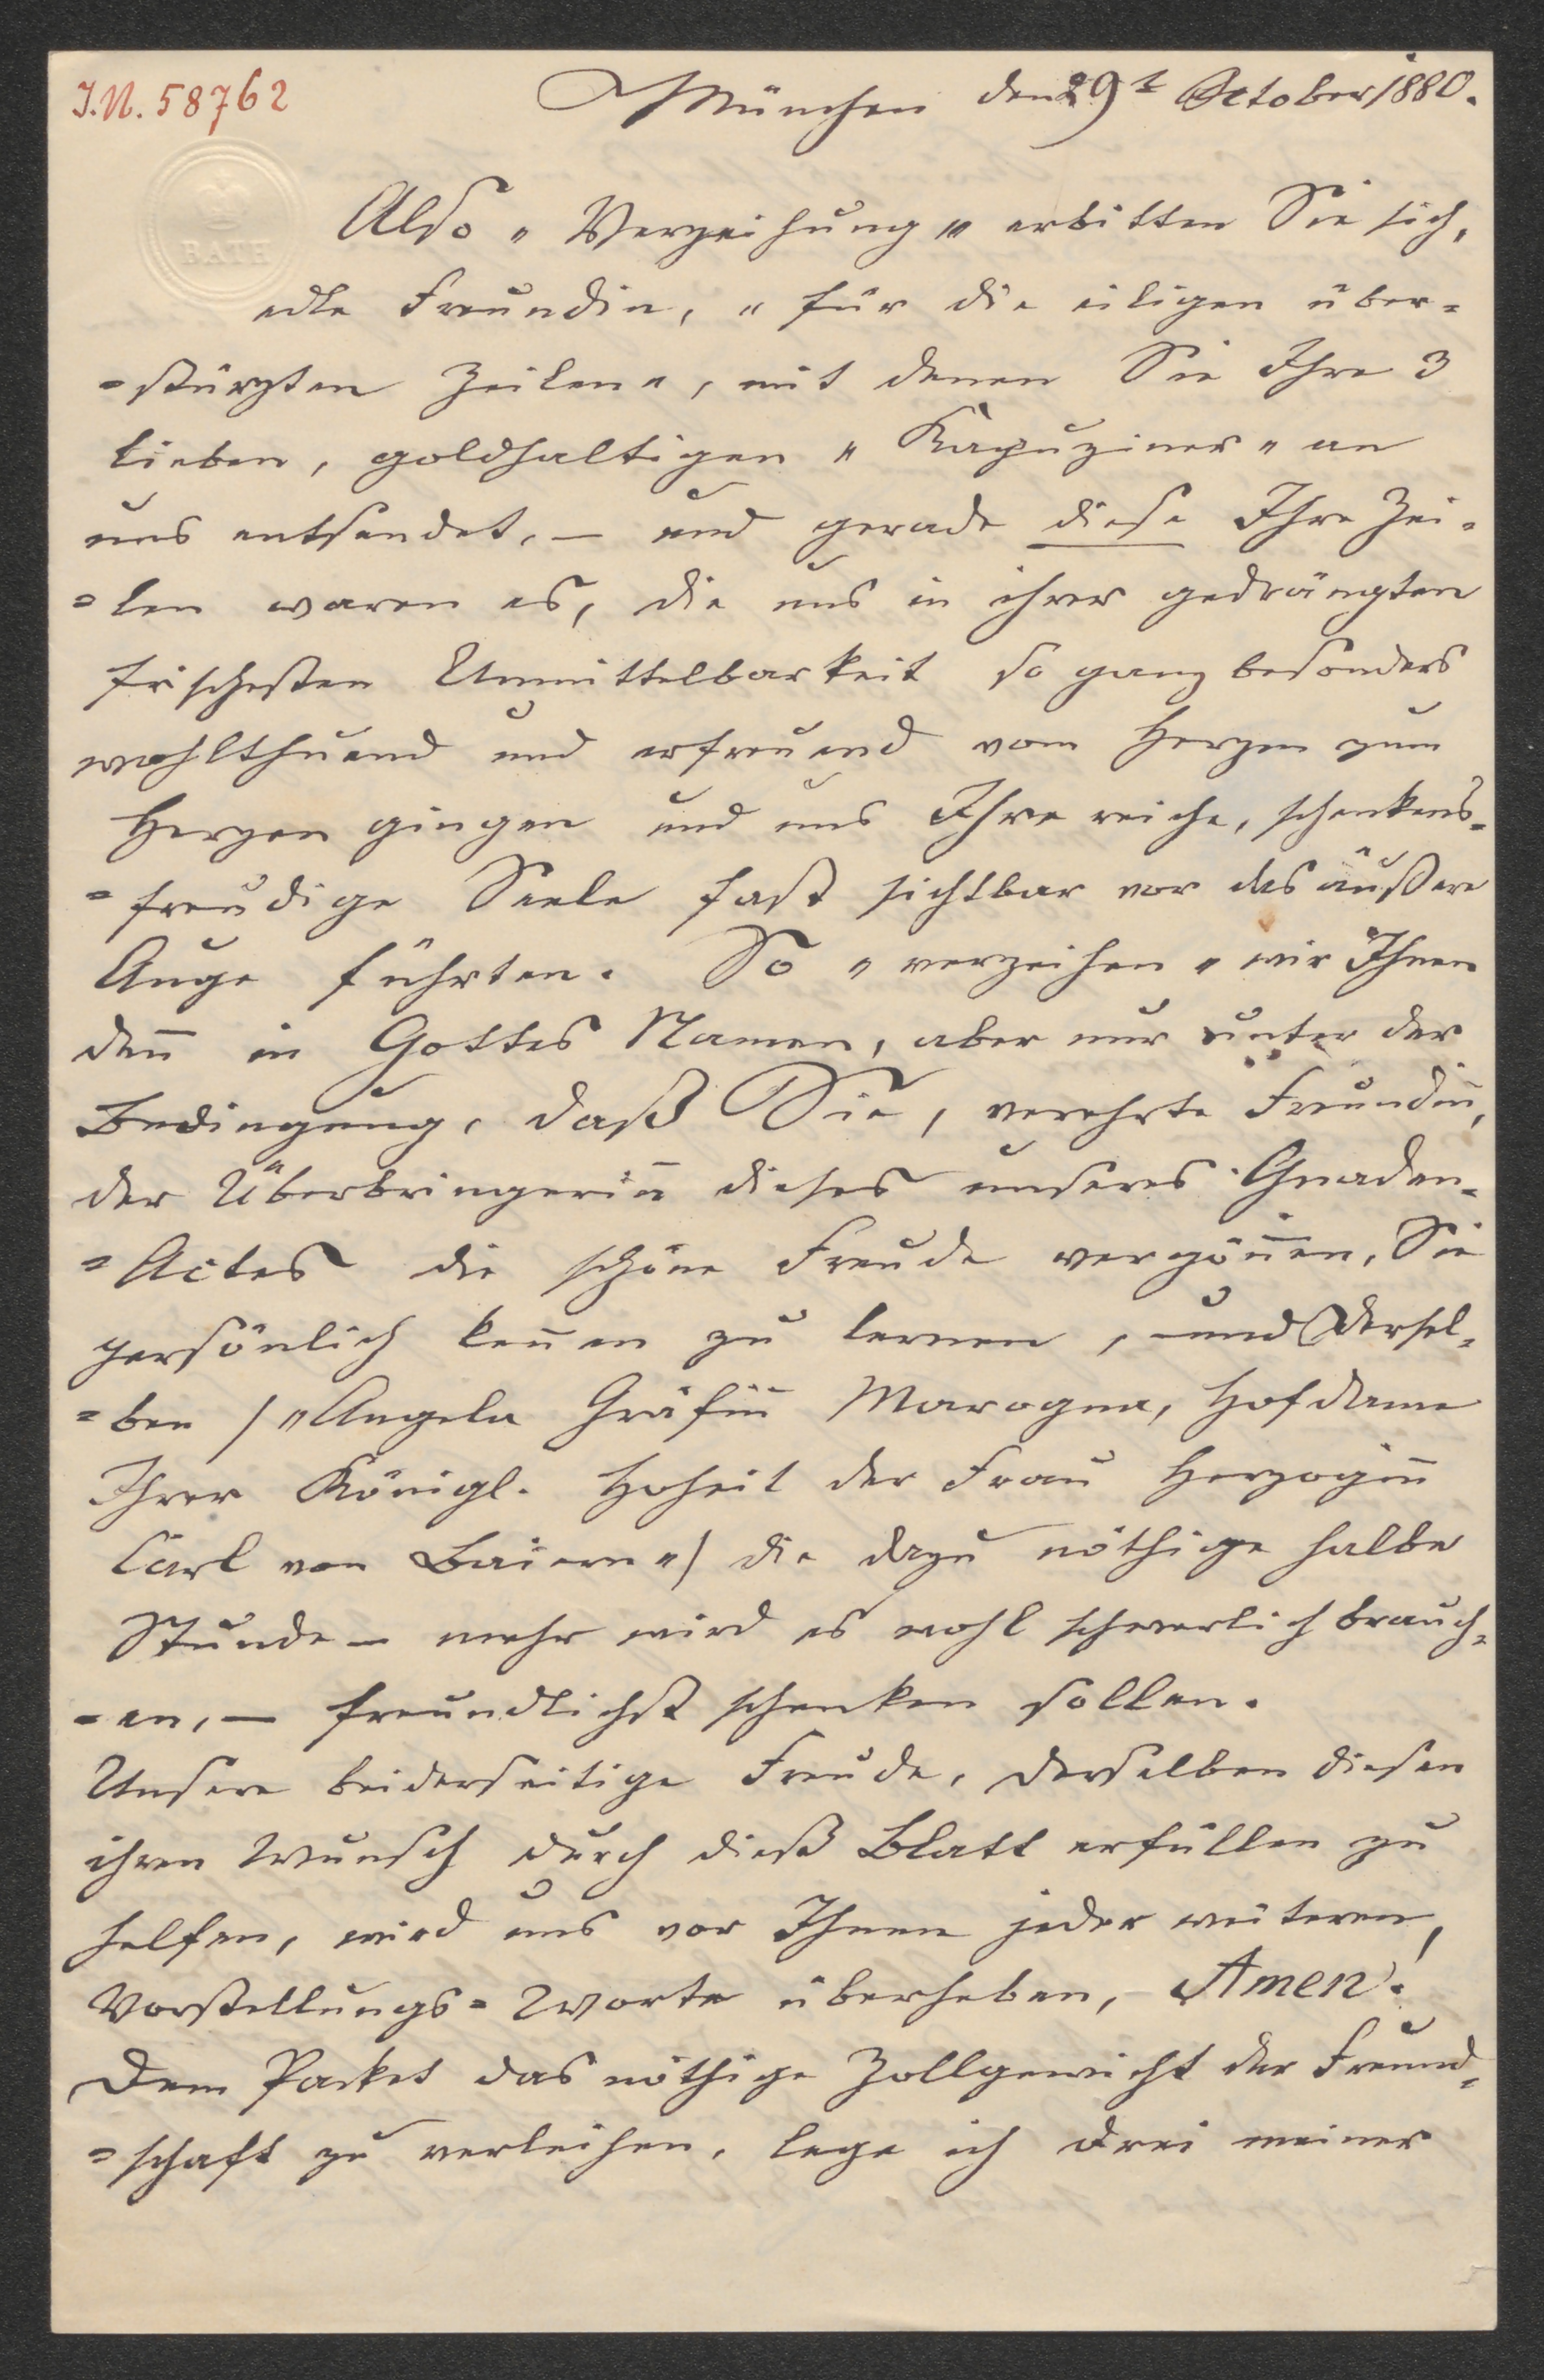 I.N. 58762
München den 29t October 1880.
BATH
Also „Verzeihung" erbitten Sie sich,
edle Freundin, „für die eiligen über=
=stürzten Zeilen", mit denen Sie Ihre 3
lieben, goldhaltigen „Kapuziner" an
uns entsendet, — und gerade diese Ihre Zei=
=len waren es, die uns in ihrer gedrängten
frischesten Unmittelbarkeit so ganz besonders
wohlthuend und erfreuend vom Herzen zum
Herzen gingen und uns Ihre reiche, schenkens=
=freudige Seele fast sichtbar vor das äußere
Auge führten. So „verzeihen" wir Ihnen
deñ in Gottes Namen, aber nur unter der
Bedingung, daß Sie, verehrte Freundiñ,
der Überbringeriñ dieses unseres Gnaden=
=Actes die schöne Freude vergöñen, Sie
persönlich keñen zu lernen, – und Dersel=
=ben /„Angela Gräfiñ Marogna, Hofdame
Ihrer Königl. Hoheit der Frau Herzogiñ
Carl von Baiern"/ die dazu nöthige halbe
Stunde – mehr wird es wohl schwerlich brauch=
=en, — freundlichst schenken sollen.
Unsere beiderseitige Freude, derselben diesen
ihren Wunsch durch dieß Blatt erfüllen zu
helfen, wird uns vor Ihnen jeder weiteren,
Vorstellungs=Worte überheben, – Amen!
Dem Packet das nöthige Zollgewicht der Freund=
=schaft zu verleihen, lege ich drei meiner